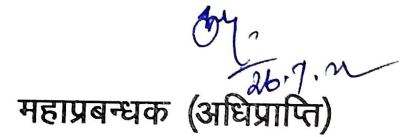 26.7.22
महाप्रबन्धक (अधिप्राप्ति)